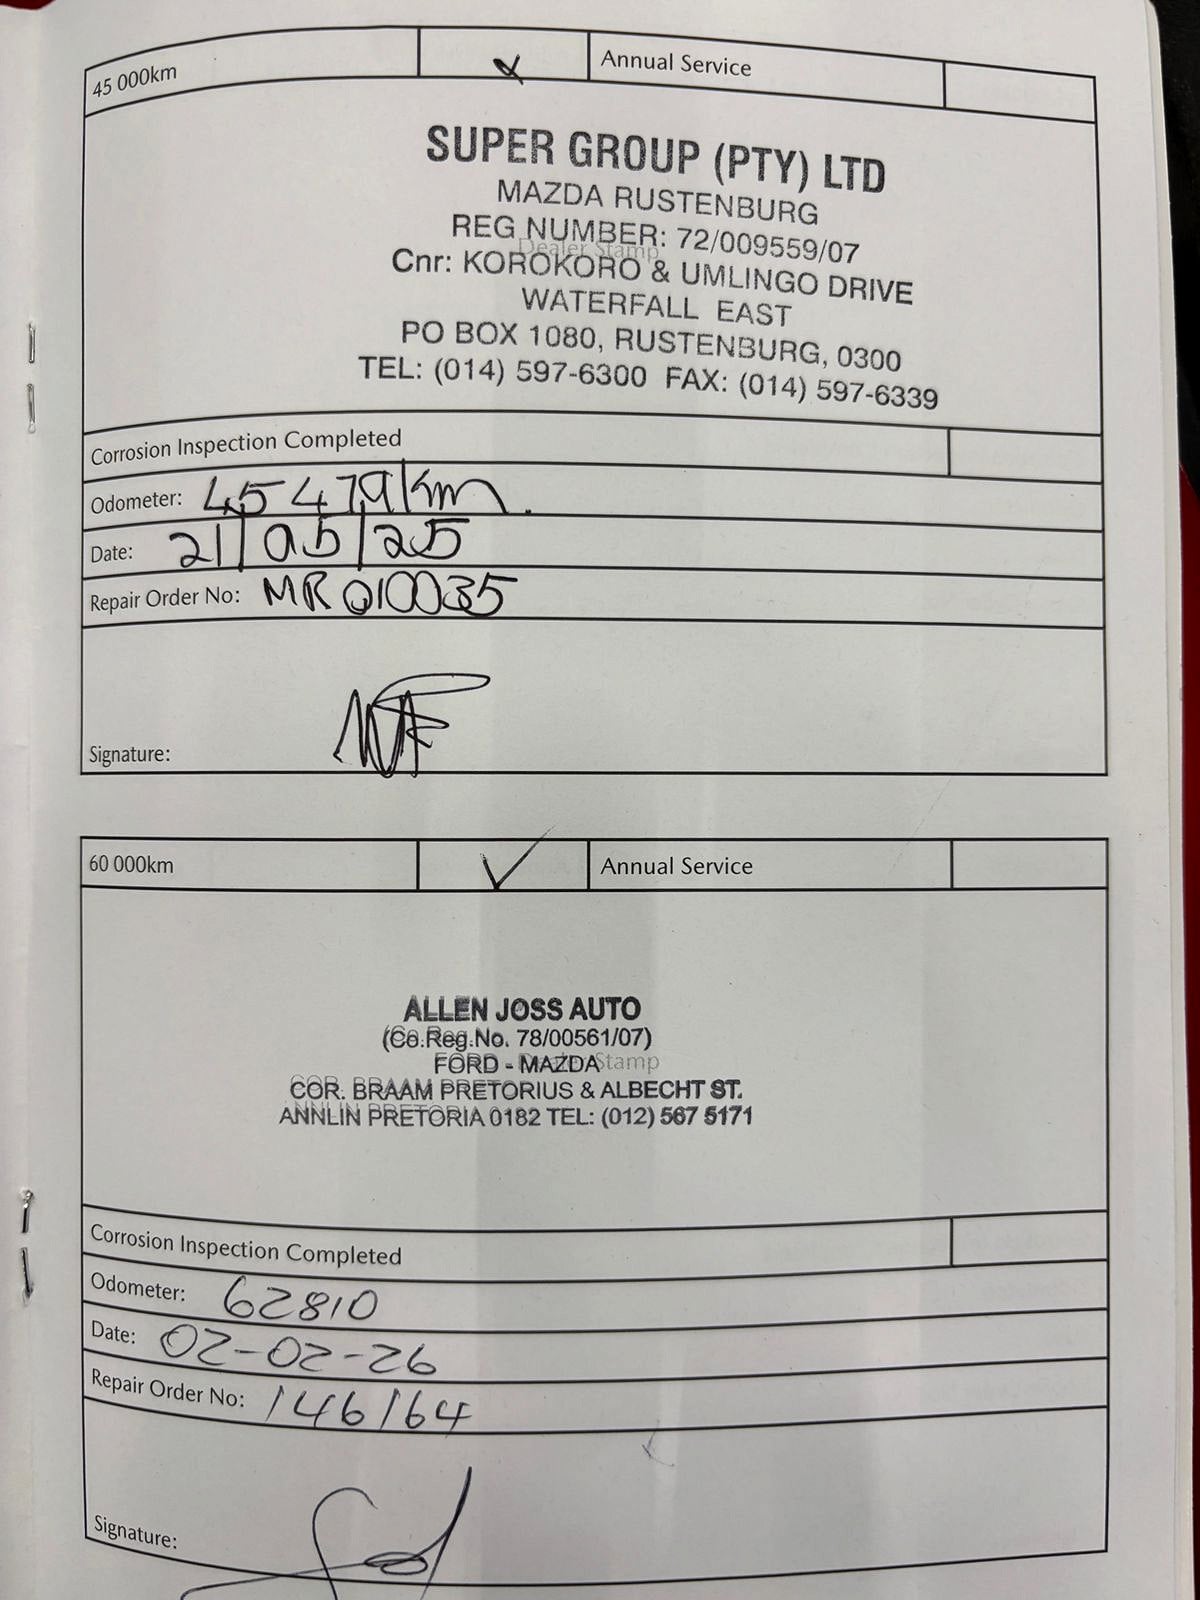 45 000km Annual Service
SUPER GROUP (PTY) LTD
MAZDA RUSTENBURG
REG NUMBER: 72/009559/07
Dealer Stamp
Cnr: KOROKORO & UMLINGO DRIVE
WATERFALL EAST
PO BOX 1080, RUSTENBURG, 0300
TEL: (014) 597-6300 FAX: (014) 597-6339
Corrosion Inspection Completed
Odometer: 45 479km.
Date: 21/05/25
Repair Order No: MR010035
Signature:
60 000km ✓ Annual Service
ALLEN JOSS AUTO
(Co.Reg.No. 78/00561/07)
FORD - MAZDA
Dealer Stamp
COR. BRAAM PRETORIUS & ALBECHT ST.
ANNLIN PRETORIA 0182 TEL: (012) 567 5171
Corrosion Inspection Completed
Odometer: 62810
Date: 02-02-26
Repair Order No: 146164
Signature: